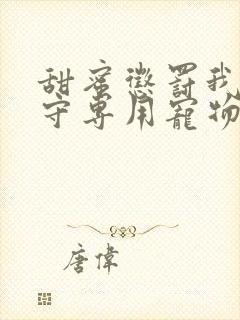 甜蜜懲罰我
守專用寵物
唐偉